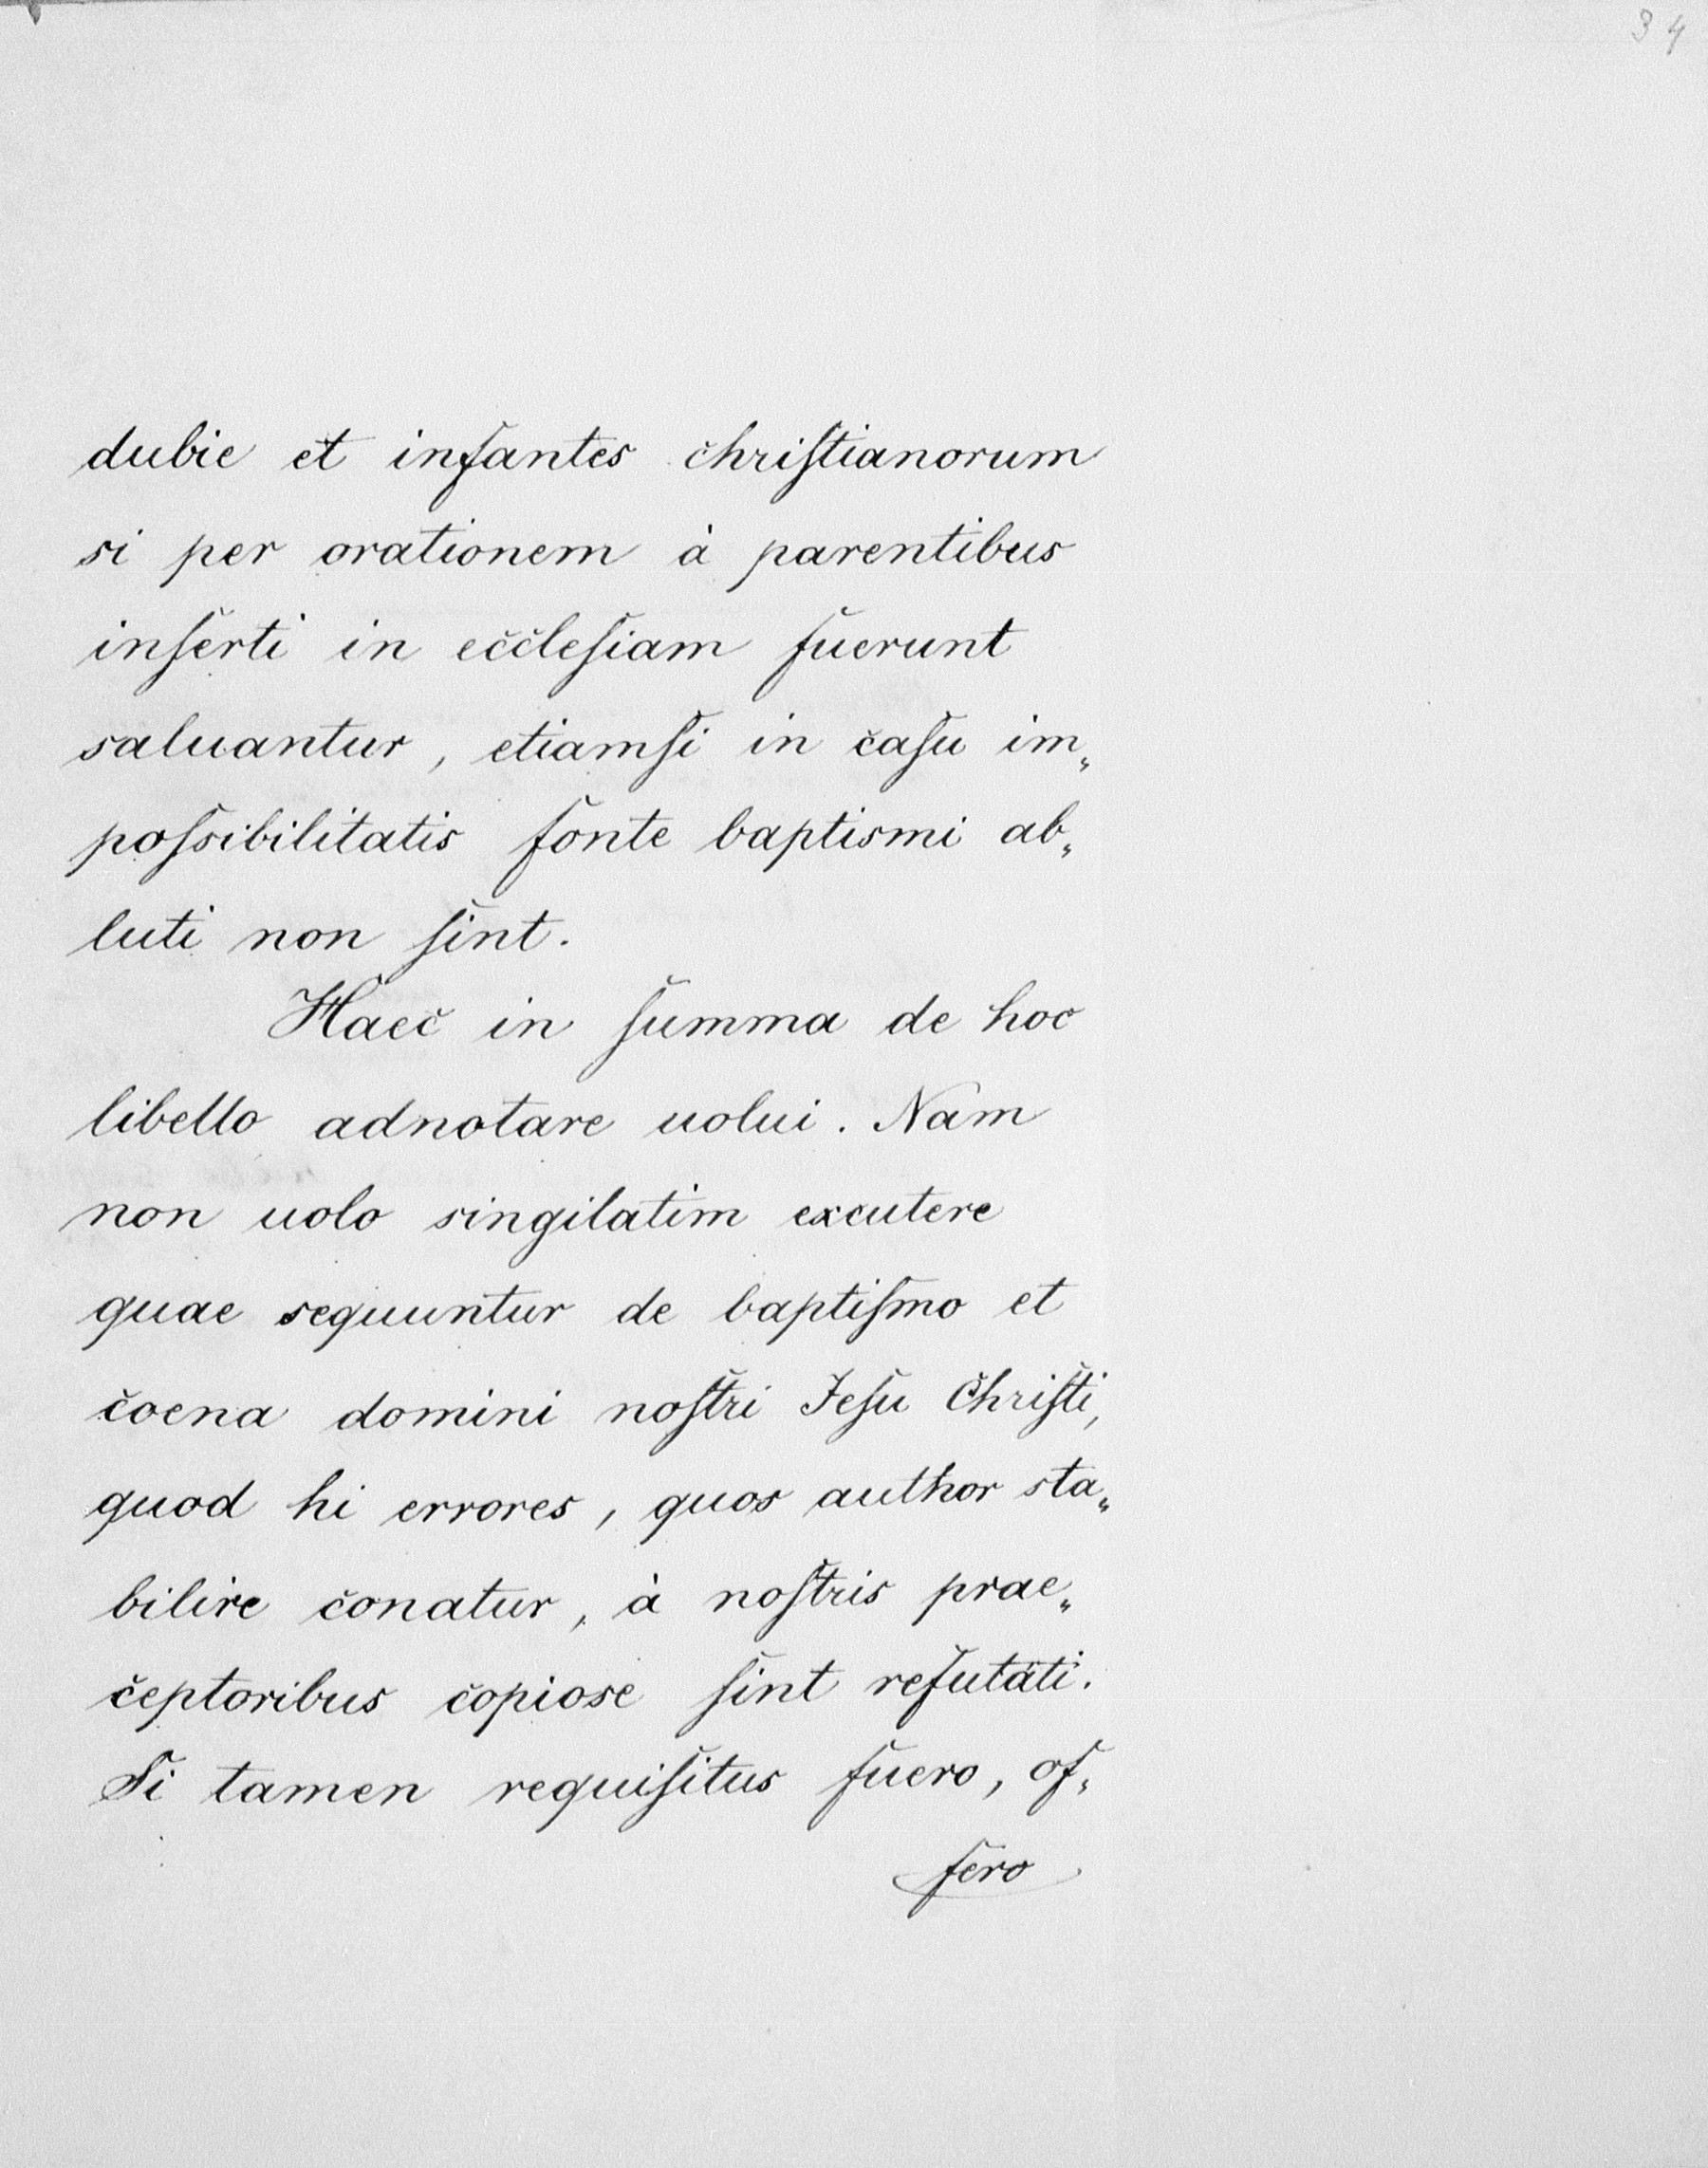 34
dubie et infantes chriſtianorum
si per orationem à parentibus
inſerti in eccleſiam fuerunt
saluantur, etiamſi in caſu im„
poſsibilitatis fonte baptismi ab„
luti non ſint.
Haec in ſumma de hoc
libello adnotare uolui. Nam
non uolo singilatim excutere
quae sequuntur de baptiſmo et
coena domini noſtri Jeſu Chriſti,
quod hi errores, quos author sta„
bilire conatur, à noſtris prae„
ceptoribus copiose ſint refutati.
Si tamen requiſitus fuero, of„
fero